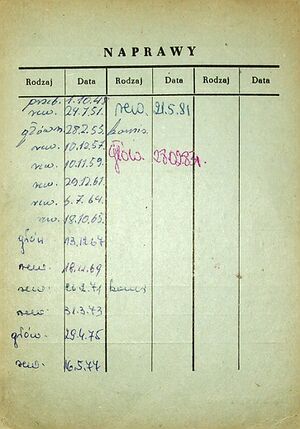 NAPRAWY
Rodzaj Data Rodzaj Data Rodzaj Data
przeb. 1.10.48 rew. 21.5.81
rew. 24.7.51.
główn. 28.2.53. komis.
rew. 10.12.57. głów. 280283r.
rew. 10.11.59.
rew. 29.12.61.
rew. 5.7.64.
rew. 18.10.65.
głów. 13.12.67
rew. 18.11.69
rew. 26.2.71
rew. 31.3.73
głów. 29.4.75
rew. 16.5.77